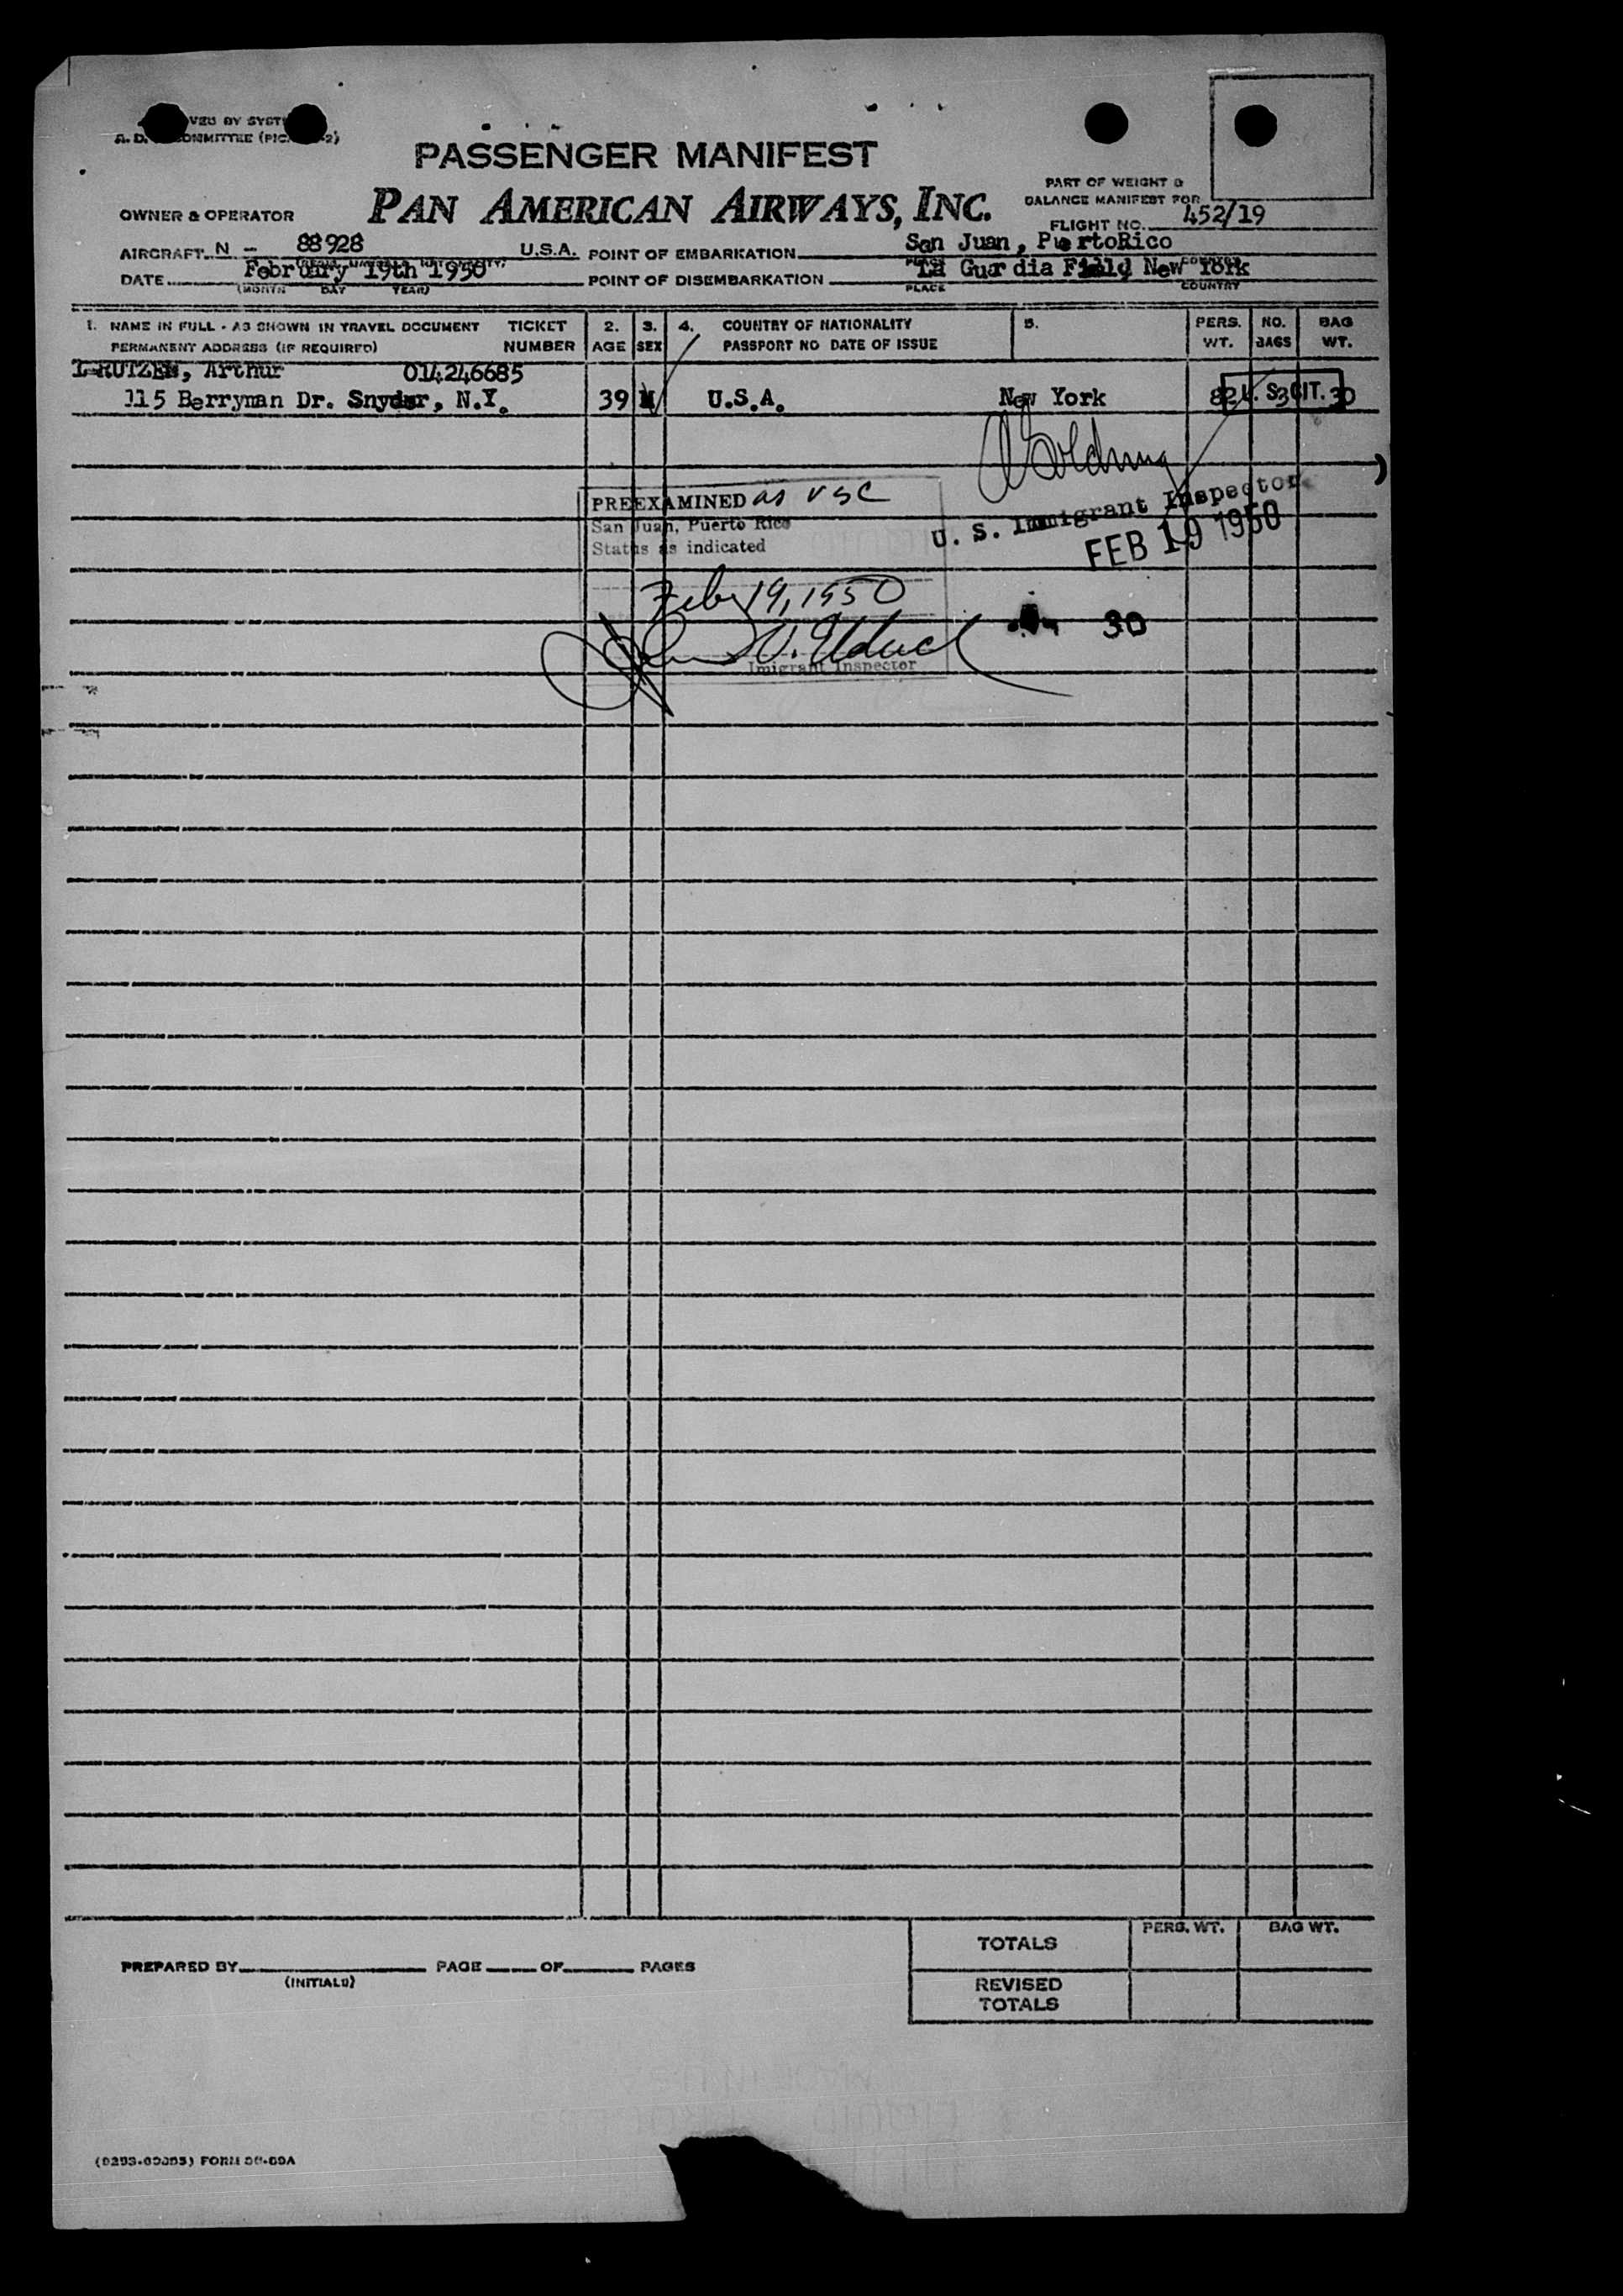 PASSENGER MANIFEST
PAN AMERICAN AIRWAYS, INC.
PART OF WEIGHT &
BALANCE MANIFEST FOR
FLIGHT NO. 452/19
OWNER & OPERATOR
AIRCRAFT N - 88928 U.S.A. POINT OF EMBARKATION San Juan, PuertoRico
DATE February 19th 1950 POINT OF DISEMBARKATION La Guardia Field, New York
(MONTH DAY YEAR) PLACE COUNTRY
1. NAME IN FULL - AS SHOWN IN TRAVEL DOCUMENT TICKET 2. 3. 4. COUNTRY OF NATIONALITY 5. PERS. NO. BAG
PERMANENT ADDRESS (IF REQUIRED) NUMBER AGE SEX PASSPORT NO DATE OF ISSUE WT. BAGS WT.
RUTZEN, Arthur 014246685
115 Berryman Dr. Snyder, N.Y. 39 M U.S.A. New York 82 3 30
U. S. CIT.
PREEXAMINED as USC
San Juan, Puerto Rico
Status as indicated
U. S. Immigrant Inspector
FEB 19 1950
Feby 19, 1950
30
John V.
Imigrant Inspector
TOTALS PERS. WT. BAG WT.
PREPARED BY (INITIALS) PAGE OF PAGES
REVISED
TOTALS